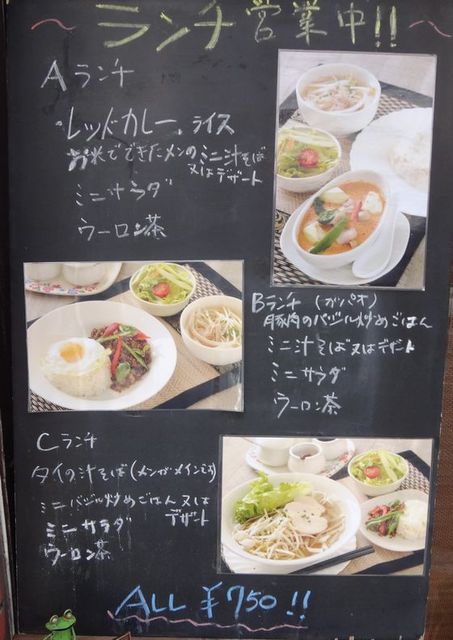 ランチ営業中!!
Aランチ
・レッドカレー、ライス
お米でできたメンのミニ汁そば
又はデザート
ミニサラダ
ウーロン茶
Bランチ (ガパオ)
豚肉のバジル炒めごはん
ミニ汁そば又はデザート
ミニサラダ
ウーロン茶
Cランチ
タイの汁そば(メンがメインです)
ミニバジル炒めごはん又は
デザート
ミニサラダ
ウーロン茶
ALL ¥750!!